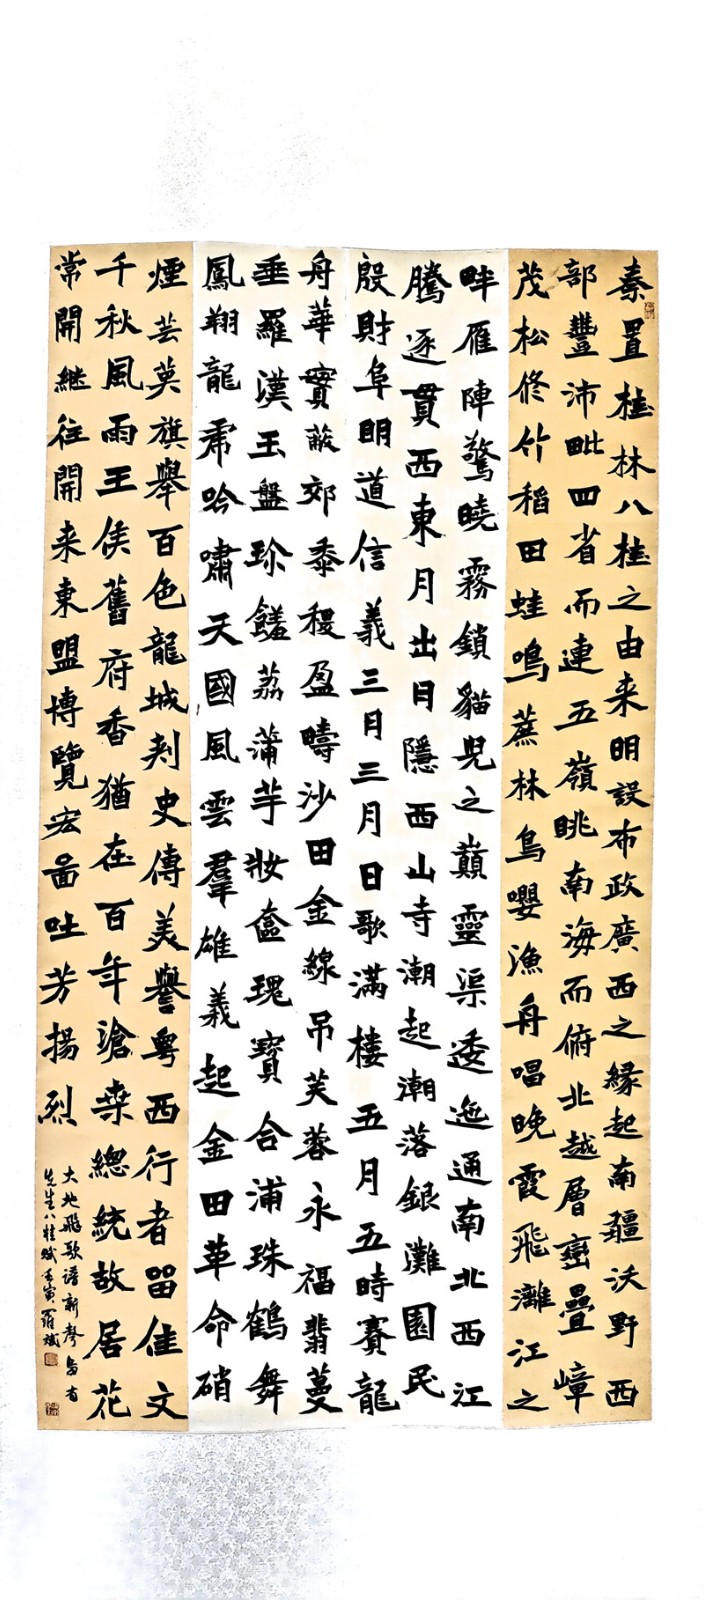 秦置桂林八桂之由来明設布政廣西之緣起南疆沃野西
部豐沛毗四省而連五嶺眺南海而俯北越層巒疊嶂
茂松修竹稻田蛙鳴蔗林鳥嚶漁舟唱晚霞飛灕江之
畔雁陣驚曉霧鎖貓兒之巔靈渠逶迤通南北西江
騰逐貫西東月出日隱西山寺潮起潮落銀灘園民
殷財阜明道信義三月三月日歌滿樓五月五時賽龍
舟華實蔽郊黍稷盈疇沙田金線吊芙蓉永福翡蔓
垂羅漢玉盤珍饈荔蒲芋妝奩瑰寶合浦珠鶴舞
鳳翔龍虎吟嘯天國風雲羣雄義起金田革命硝
煙芸莫旗舉百色龍城刺史傳美譽粵西行者留佳文
千秋風雨王侯舊府香猶在百年滄桑總統故居花
常開继往開来東盟博覽宏圖吐芳揚烈
大地飛歌譜新聲
先生八桂赋壬寅羅斌